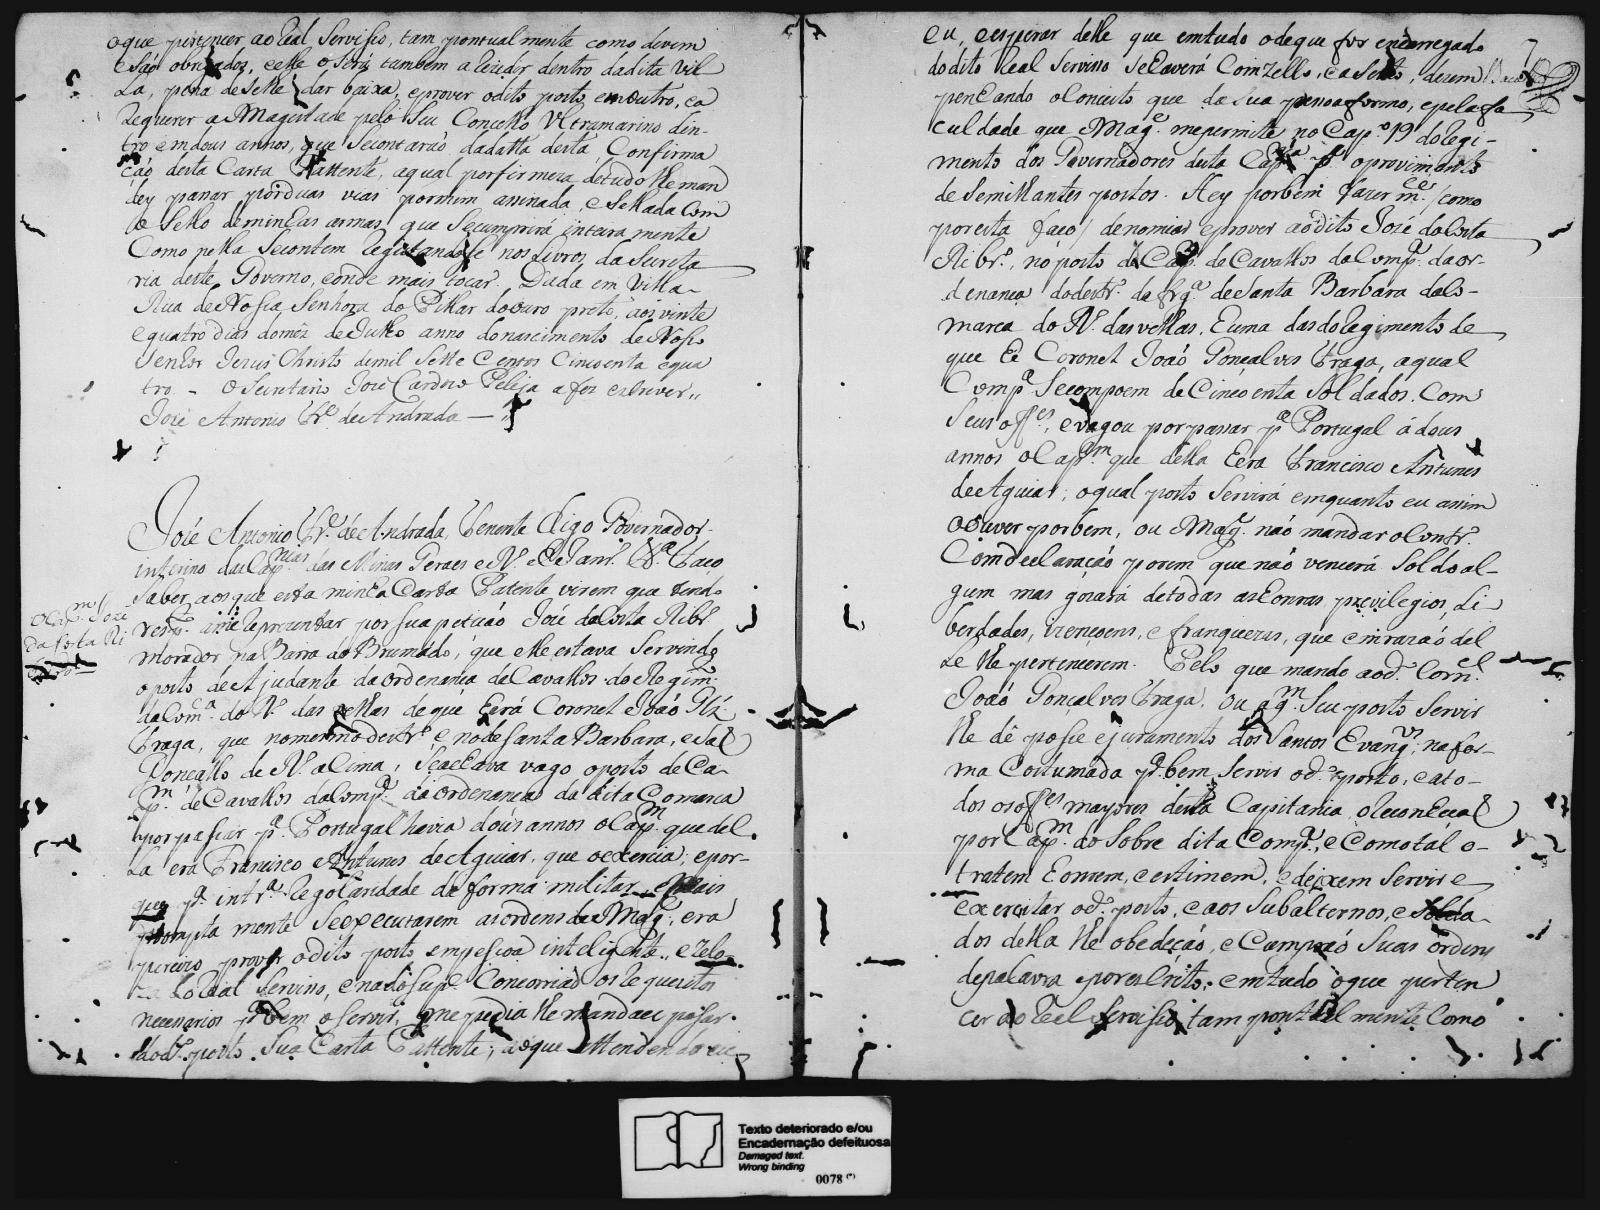 oque pertencer ao Real Servisso, tam pontual mente como devem
e São obrigados, e elle o Será tambem a Rezidir dentro dadita Vil
la, pena de Selle dár baixa, e prover odito posto, em outro, ea
Requerer a Magestade pelo Seu Concelho Ultramarino den-
tro em dous annos, que Secontaráo dadatta desta, Confirma
çáo desta Carta Pattente, aqual porfirmeza detudo lhe man
dey passar por duas vias por mim assinada, e Sellada Com
o Sello deminhas armas, que Secumprirá inteiramente
Como nella Secontem Registandose nos Livros da Secreta
ria deste Governo, eonde mais tocar. Dada em Villa
Rica de Nossa Senhora do Pillar do ouro preto, aos vinte
e quatro dias domez de Julho anno donascimento de Nosso
Senhor Jesus Christo demil Sette Centos Cincoenta equa
tro - O Secretario José Cardoso Peleja a fez escrever,,
José Antonio Fr.e de Andrada —
José Antonio Fr.e de Andrada, Tenente digo Governador
interino das Cap.nias das Minas Geraes e R.o de Janr.o &.a Faço
Saber, aos que esta minha Carta Patente virem que tendo
resp.to ame Reprezentar por sua petição José da Costa Ribr.o
morador na Barra do Brumádo, que elle estava Servindo
o posto de Ajudante da ordenança de Cavallos do Regim.to
da Com.ca do R.o das vellas de que hérá Coronel João Glz
Fraga, que nomesmo destr.o e node Santa Barbara, e Sáo
Gonçallo do R.o aSima, Seachava vago oposto de Ca-
p.m de Cavallos da Comp.a da ordenança da dita Comarca
por passar p.a Portugal havia dous annos o Cap.m que del
la era Francisco Antunes de Aguiar, que oexercia; epor-
que p.a intr.a Regolaridade da forma militar, e mais
prompta mente Seexecutarem as ordens de S. Mag.e, era
percizo prover odito posto empessoa inteligente, eZelo
za do Real Servisso, e na do Sup.e Concorriáo os Requezitos
necessarios p.a bem o servir, me pedia lhe mandace passar
do d.o posto Sua Carta Pattente; aoque attendendo eu
O Cap.m José
da Costa Ri
beiro
eu, e esperar delle que emtudo odeque for encarregado
dodito Real Servisso Sehaverá Comzello, e aserto, dezem
penhando o Conceito que da Sua pessoa formo, epelafa
culdade que S. Mag.e mepermite no Cap.o 19 doRegi-
mento dos Governadores desta Cap.nia p.a oprovimento
de Semilhantes postos. Hey porbem fazer m.ce /como
poresta faço/ de nomiar eprover aodito José daCosta
Ribr.o, no posto de Cap.m de Cavallos da Comp.a da or-
denança dodestr.o da frg.a de Santa Barbara daCo-
marca do R.o das vellas, huma das do Regimento de
que hé Coronel João Gonçalves Fraga, aqual
Comp.a Secompoem de Cincoenta Soldados, Com
Seus off.es, e vagou por passar p.a Portugal á dous
annos o Cap.m que della hera Francisco Antunes
de Aguiar; oqual posto Servirá emquanto eu assim
ouver porbem, ou S. Mag.e náo mandar o Contr.o
Com declaraçáo porem que náo vencerá Soldo al-
gum mas gozará detodas ashonras, previlegios, Li
berdades, izençoens, e franquezas, que em razáo del
le lhe pertencerem. Pelo que mando aod.o Corn.el
João Gonçalves Fraga, ou aq.m Seu posto Servir
lhe dê posse ejuramento dos Santos Evang.os, na for-
ma Costumada p.a bem Servir od.o posto, e ato-
dos os off.es mayores desta Capitania oReconheçáo
por Cap.m da Sobre dita Comp.a, e Como tal o-
tratem honrem, e estimem, e deixem Servir e
exercitar od.o posto, e aos Subalternos, e Solda
dos della lhe obedeçáo, e Cumpráo Suas ordens
depalavra epor escrito; em tudo o que perten
cer ao Real Servisso tam pontual mente Como
Texto deteriorado e/ou
Encadernação defeituosa
Damaged text.
Wrong binding
0078 (*)